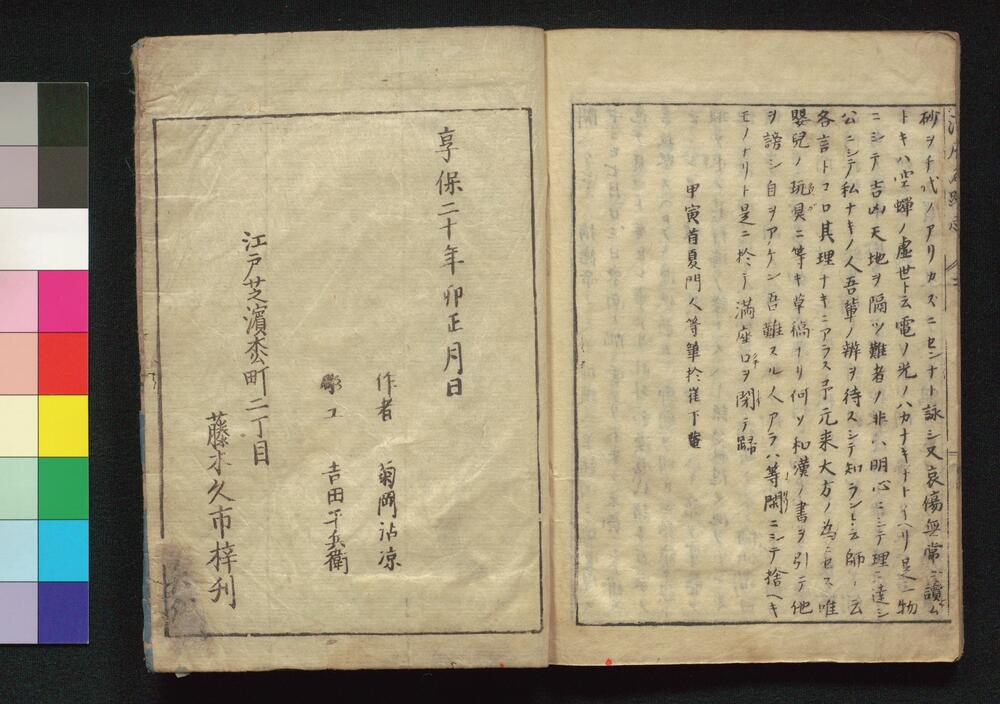 砂ヲチ代ノアリカズニセンナト詠シ又哀傷無常ニ讀ム
トキハ空蟬ノ虚世ト云電ノ光ノハカナキナトイヘリ是一物
ニシテ吉凶天地ヲ隔ツ難者ノ非ハ明心ニシテ理ニ達シ
公ニシテ私ナキノ人吾輩ノ辨ヲ待スシテ知ラント云師ノ云
各言トコロ其理ナキニアラス予元来大方ノ為ニセス唯
嬰兒ノ玩具ニ等キ草稿ナリ何ソ和漢ノ書ヲ引テ他
ヲ謗シ自ヲアケン吾難スル人アラハ等閑ニシテ捨ヘキ
モノナリト是ニ於テ満座口ヲ閉テ歸
甲寅首夏門人等筆於崔下菴
享保二十年卯正月日
作者 菊岡沾凉
彫工 吉田平兵衛
江戸芝濱松町二丁目
藤木久市梓刋